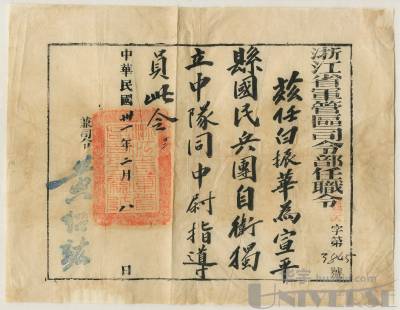 浙江省軍管區司令部任職令
字第
號
茲任白振華為宣平
縣國民兵團自衛獨
立中隊同中尉指導
員此令
中華民國卅一年二月八日
兼司令
黃紹竑
UNIVERSE